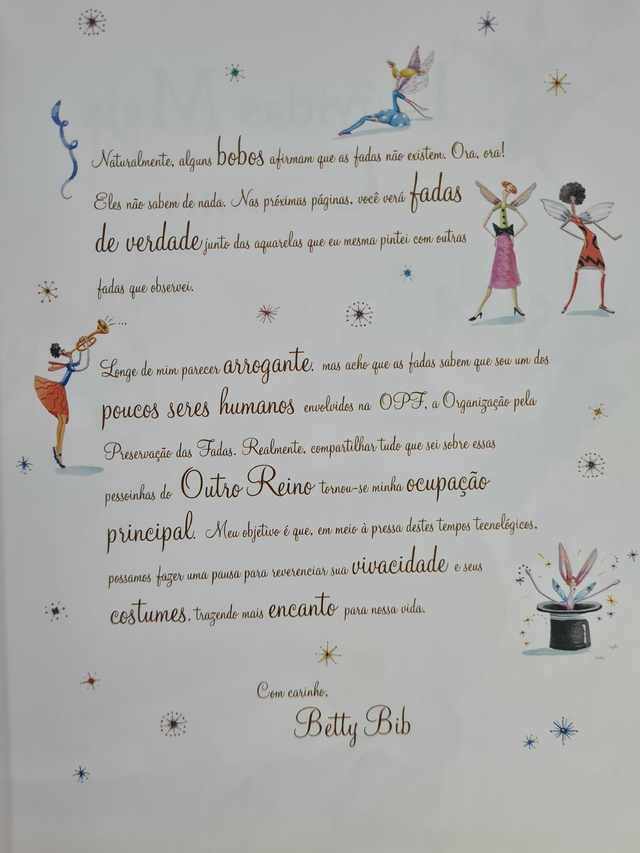 Naturalmente, alguns bobos afirmam que as fadas não existem. Ora, ora!
Eles não sabem de nada. Nas próximas páginas, você verá fadas
de verdade junto das aquarelas que eu mesma pintei com outras
fadas que observei.
Longe de mim parecer arrogante, mas acho que as fadas sabem que sou um dos
poucos seres humanos envolvidos na OPF, a Organização pela
Preservação das Fadas. Realmente, compartilhar tudo que sei sobre essas
pessoinhas do Outro Reino tornou-se minha ocupação
principal. Meu objetivo é que, em meio à pressa destes tempos tecnológicos,
possamos fazer uma pausa para reverenciar sua vivacidade e seus
costumes, trazendo mais encanto para nossa vida.
Com carinho,
Betty Bib